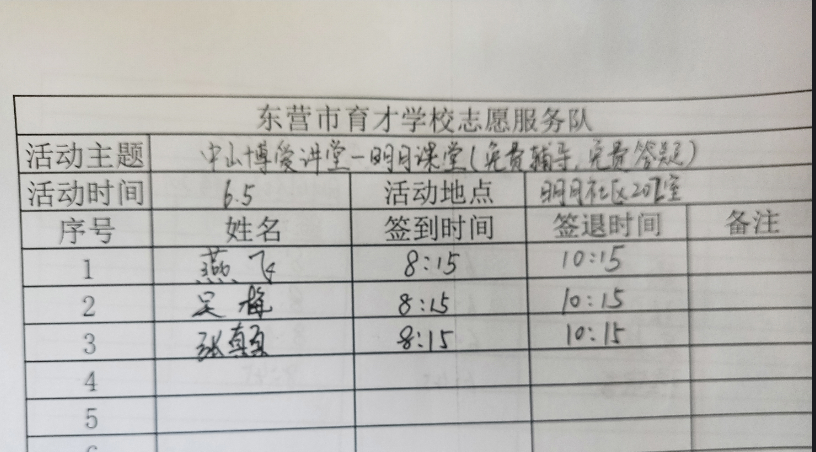 东营市育才学校志愿服务队
活动主题 中山博爱讲堂-明月课堂(免费辅导,免费答疑)
活动时间 6.5 活动地点 明月社区207室
序号 姓名 签到时间 签退时间 备注
1 燕飞 8:15 10:15
2 吴梅 8:15 10:15
3 张 8:15 10:15
4
5